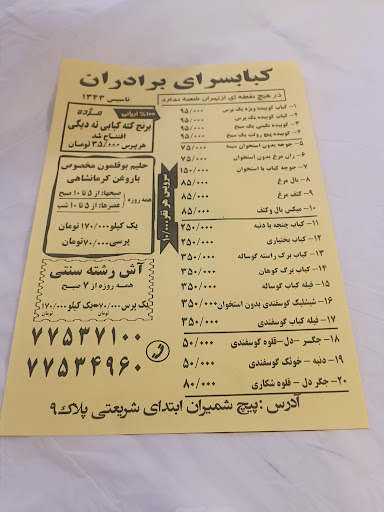 کبابسرای برادران
در هیچ نقطه ای از تهران شعبه ندارد
تاسیس ۱۳۴۳
۱- کباب کوبیده ویژه یک پرس ۹۵/۰۰۰
۲- کباب کوبیده یک پرس ۹۵/۰۰۰
۳- کوبیده نگینی یک سیخ ۹۵/۰۰۰
۴- کوبیده پیچ رولت یک سیخ ۹۵/۰۰۰
۵- جوجه بدون استخوان سینه ۷۵/۰۰۰
۶- ران مرغ بدون استخوان ۷۵/۰۰۰
۷- جوجه کباب با استخوان ۱۵۰/۰۰۰
۸- بال مرغ ۸۵/۰۰۰
۹- کتف مرغ ۸۵/۰۰۰
۱۰- میکس بال وکتف ۸۵/۰۰۰
۱۱- کباب چنجه با دنبه ۲۵۰/۰۰۰
۱۲- کباب بختیاری ۲۵۰/۰۰۰
۱۳- کباب برگ راسته گوساله ۳۵۰/۰۰۰
۱۴- کباب برگ کوهان ۳۵۰/۰۰۰
۱۵- فیله کباب گوساله ۳۵۰/۰۰۰
۱۶- شیشلیک گوسفندی بدون استخوان ۳۵۰/۰۰۰
۱۷- فیله کباب گوسفندی ۳۵۰/۰۰۰
۱۸- جگر -دل- قلوه گوسفندی ۵۰/۰۰۰
۱۹- دنبه - خوئک گوسفندی ۵۰/۰۰۰
۲۰- جگر دل - قلوه شکاری ۸۰/۰۰۰
مژده
۱۰۰% ایرانی
برنج کته کبابی ته دیگی
افتتاح شد
هرپرس ۳۵/۰۰۰ تومان
حلیم بوقلمون مخصوص
باروغن کرمانشاهی
همه روزه
صبحها: از ۵ تا ۱۰ صبح
عصرها: از ۵ تا ۱۰ شب
یک کیلو ۱۷۰/۰۰۰ تومان
پرسی ۷۰/۰۰۰ تومان
سرویس هر نفر ۱۰/۰۰۰
آش رشته سنتی
همه روزه از ۷ صبح
یک پرس ۷۰/۰۰۰ تومان یک کیلو ۱۷۰/۰۰۰ تومان
۷۷۵۳۷۱۰۰
۷۷۵۳۴۹۶۰
آدرس : پیچ شمیران ابتدای شریعتی پلاک ۹